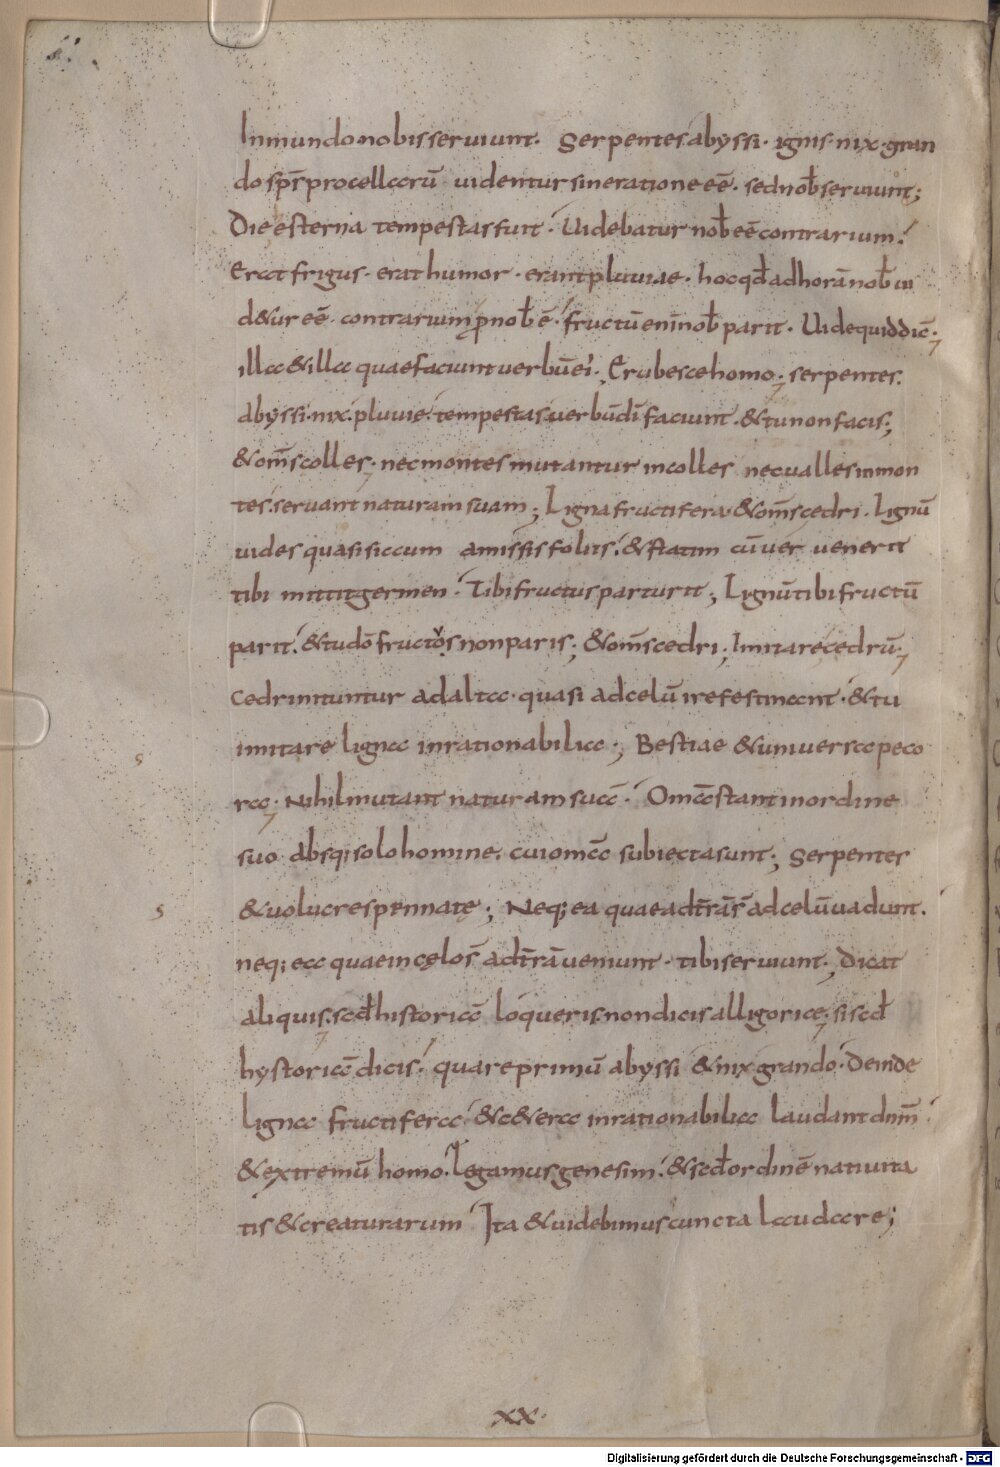 Inmundo nobis seruiunt. Serpentes abyssi. ignis. nix. gran
do sp̄r procellarū uidentur sine ratione eē. sed nob̄ seruiunt;
Die esterna tempestas fuit. Uidebatur nob̄ eē contrarium.
Erat frigus. erat humor. erant pluuiae. hoc qd̄ ad horā nob̄ ui
d&ur eē. contrarium p̄ nob̄ ē. fructū enī nob̄ parit. Uide quid dic̄.
illa & illa quae faciunt uerbū eī. Erubesce homo. serpentes.
abyssi. nix. pluuie. tempestas. uerbū dī faciunt. & tu non facis;
& om̄s colles. nec montes mutantur in colles nec ualles in mon
tes. seruant naturam suam; Ligna fructifera & om̄s cedri. Lignū
uides quasi siccum amissis foliis. & statim cū uer uenerit
tibi mittit germen. Tibi fructus parturit; Lignū tibi fructū
parit. & tu dō fructos non paris; & om̄s cedri; Imitare cedrū.
Cedri nituntur ad alta. quasi ad celū ire festinant. & tu
imitare ligna inrationabilia; Bestiae & uniuersa peco
ra. Nihil mutant naturam suā. Omā stant in ordine
suo absq; solo homine. cui omā subiecta sunt; Serpentes
& uolucres pennatę; Neq; ea quae ad t̄rā s̄ ad celū uadunt.
neq; ea quae in cęlo s̄ ad t̄rā ueniunt. tibi seruiunt; Dicat
aliquis. scd̄ historiā loqueris. non dicis alligorice. si scd̄
hystoriā dicis. quare primū abyssi & nix grando. Deinde
ligna fructifera & c&era inrationabilia laudant dn̄m
& extremū homo. Legamus genesim. & scd̄ ordinē natiuita
tis & creaturarum Ita & uidebimus cuncta laudare;
s
s
XX.
Digitalisierung gefördert durch die Deutsche Forschungsgemeinschaft - DFG